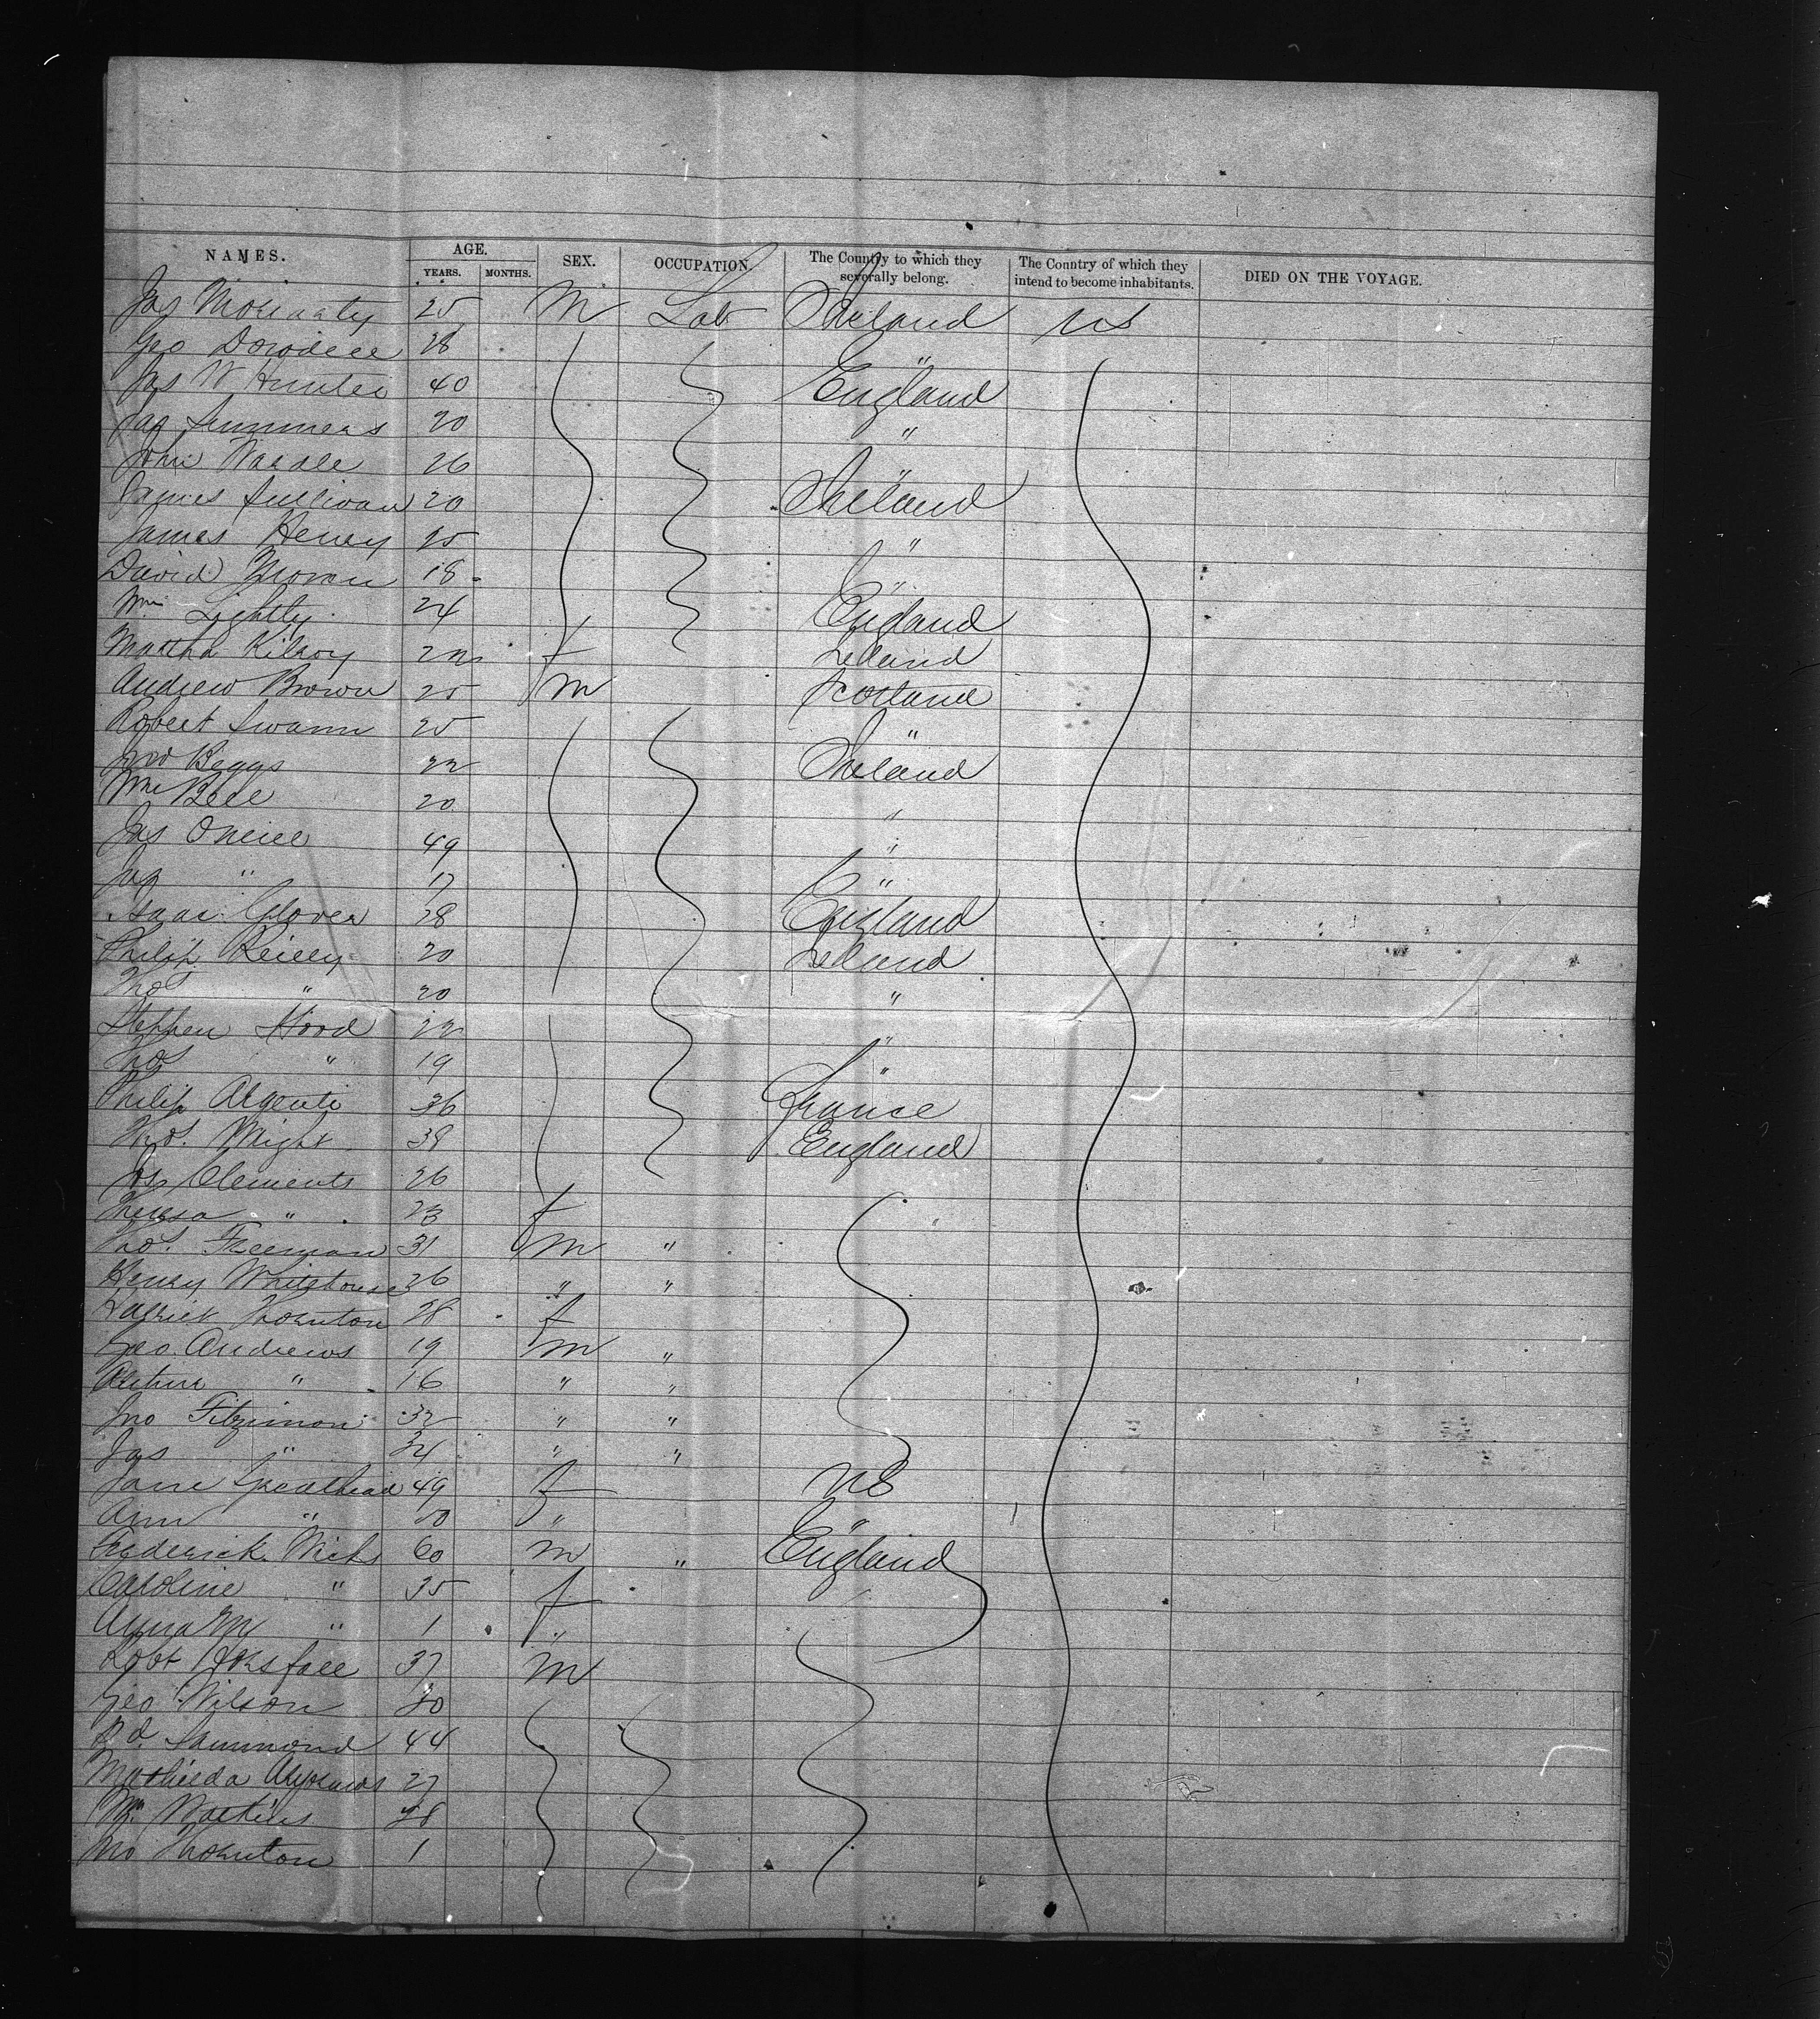 NAMES. AGE. SEX. OCCUPATION. The Country to which they severally belong. The Country of which they intend to become inhabitants. DIED ON THE VOYAGE.
YEARS. MONTHS.
Jas Moriarty 25 M Lab Ireland US
Geo 28 "
Jas W Hunter 40 England
Jas Summers 20 "
John Wardle 26 "
James Sullivan 20 Ireland
James Henry 25 "
David Moran 18 "
Wm Lightly 24 England
Martha Kilroy 22 f Ireland
Andrew Brown 25 m Scotland
Robert Swann 25 "
Jno Beggs 22 Ireland
Wm Bell 20 "
Jas Oneill 49 "
Jas " 17 "
Isaac Glover 28 England
Philip Reilly 20 Ireland
Thos " 20 "
Stephen Hood 22 "
Thos " 19 "
Philip Argenti 36 France
Thos. Wright 38 England
Jos Clements 26
Theresa " 23 f "
Thos. Freeman 31 m "
Henry Whitehouse 26 " "
Thornton 28 f
Geo. Andrews 19 m "
Arthur " 16 " "
Jno Fitzsimon 32 " "
Jas " 34 " "
Jane Greathead 49 f US
Ann " " "
Frederick 60 m " England
Caroline " 35 f
Anna M " 1 "
Robt Horsfall 37 m
Geo Wilson 30
Rd. Hammond 44
Mathilda 27
Wm. Watkins 28
Jno Thornton 1